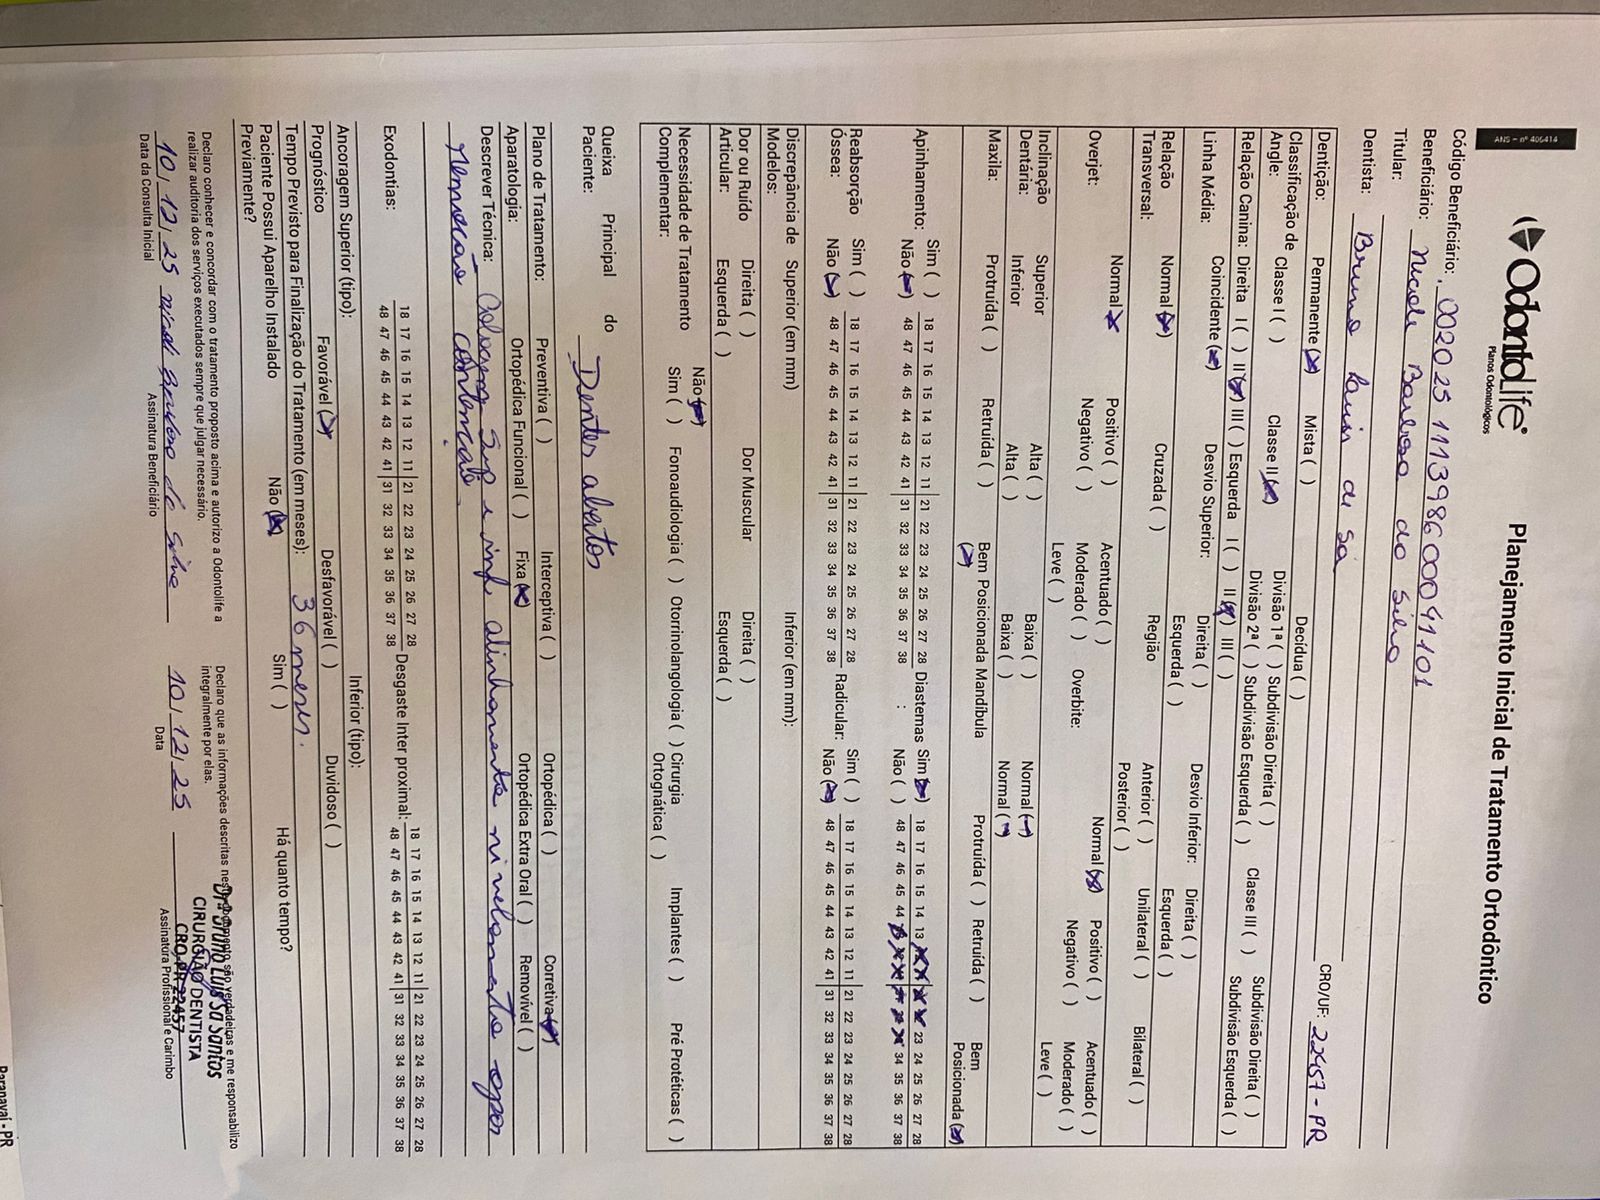 ANS – nº 406414
OdontoLife®
Planos Odontológicos
Planejamento Inicial de Tratamento Ortodôntico
Código Beneficiário: 00202511139860009 1101
Beneficiário: Nicole Barbosa da Silva
Titular:
Dentista: Bruno Luis de Sá CRO/UF: 22457 - PR
Dentição: Permanente (X) Mista ( ) Decídua ( )
Classificação de Angle: Classe I ( ) Classe II (X) Divisão 1ª ( ) Subdivisão Direita ( ) Classe III ( ) Subdivisão Direita ( )
Divisão 2ª ( ) Subdivisão Esquerda ( ) Subdivisão Esquerda ( )
Relação Canina: Direita I ( ) II (X) III ( ) Esquerda I ( ) II (X) III ( )
Linha Média: Coincidente (X) Desvio Superior: Direita ( ) Desvio Inferior: Direita ( )
Esquerda ( ) Esquerda ( )
Relação Transversal: Normal (X) Cruzada ( ) Região Anterior ( ) Unilateral ( ) Bilateral ( )
Posterior ( )
Overjet: Normal (X) Positivo ( ) Acentuado ( ) Overbite: Normal (X) Positivo ( ) Acentuado ( )
Negativo ( ) Moderado ( ) Negativo ( ) Moderado ( )
Leve ( ) Leve ( )
Inclinação Dentária: Superior Alta ( ) Baixa ( ) Normal (X)
Inferior Alta ( ) Baixa ( ) Normal (X)
Maxila: Protruída ( ) Retruída ( ) Bem Posicionada (X) Mandíbula Protruída ( ) Retruída ( ) Bem Posicionada (X)
Apinhamento: Sim ( ) 18 17 16 15 14 13 12 11 | 21 22 23 24 25 26 27 28 Diastemas : Sim (X) 18 17 16 15 14 13 X X X X 23 24 25 26 27 28
Não (X) 48 47 46 45 44 43 42 41 | 31 32 33 34 35 36 37 38 Não ( ) 48 47 46 45 44 X X X X X X 34 35 36 37 38
Reabsorção Óssea: Sim ( ) 18 17 16 15 14 13 12 11 | 21 22 23 24 25 26 27 28 Radicular: Sim ( ) 18 17 16 15 14 13 12 11 | 21 22 23 24 25 26 27 28
Não (X) 48 47 46 45 44 43 42 41 | 31 32 33 34 35 36 37 38 Não (X) 48 47 46 45 44 43 42 41 | 31 32 33 34 35 36 37 38
Discrepância de Modelos: Superior (em mm) Inferior (em mm):
Dor ou Ruído Articular: Direita ( ) Dor Muscular Direita ( )
Esquerda ( ) Esquerda ( )
Necessidade de Tratamento Complementar: Não (X)
Sim ( ) Fonoaudiologia ( ) Otorrinolangologia ( ) Cirurgia Ortognática ( ) Implantes ( ) Pré Protéticas ( )
Queixa Principal do Paciente: Dentes abertos
Plano de Tratamento: Preventiva ( ) Interceptiva ( ) Ortopédica ( ) Corretiva (X)
Aparatologia: Ortopédica Funcional ( ) Fixa (X) Ortopédica Extra Oral ( ) Removível ( )
Descrever Técnica: Colagem Sup e inf alinhamento nivelamento
Exodontias: 18 17 16 15 14 13 12 11 | 21 22 23 24 25 26 27 28 Desgaste Inter proximal: 18 17 16 15 14 13 12 11 | 21 22 23 24 25 26 27 28
48 47 46 45 44 43 42 41 | 31 32 33 34 35 36 37 38 48 47 46 45 44 43 42 41 | 31 32 33 34 35 36 37 38
Ancoragem Superior (tipo): Inferior (tipo):
Prognóstico Favorável (X) Desfavorável ( ) Duvidoso ( )
Tempo Previsto para Finalização do Tratamento (em meses): 36 meses.
Paciente Possui Aparelho Instalado Previamente? Não (X) Sim ( ) Há quanto tempo?
Declaro conhecer e concordar com o tratamento proposto acima e autorizo a Odontolife a realizar auditoria dos serviços executados sempre que julgar necessário.
Declaro que as informações descritas nesse documento são verdadeiras e me responsabilizo integralmente por elas.
10/12/25 Nicole Barbosa da Silva 10/12/25
Data da Consulta Inicial Assinatura Beneficiário Data Assinatura Profissional e Carimbo
Dr. Bruno Luis Sá Santos
CIRURGIÃO DENTISTA
CRO PR 22457
Paranavaí - PR